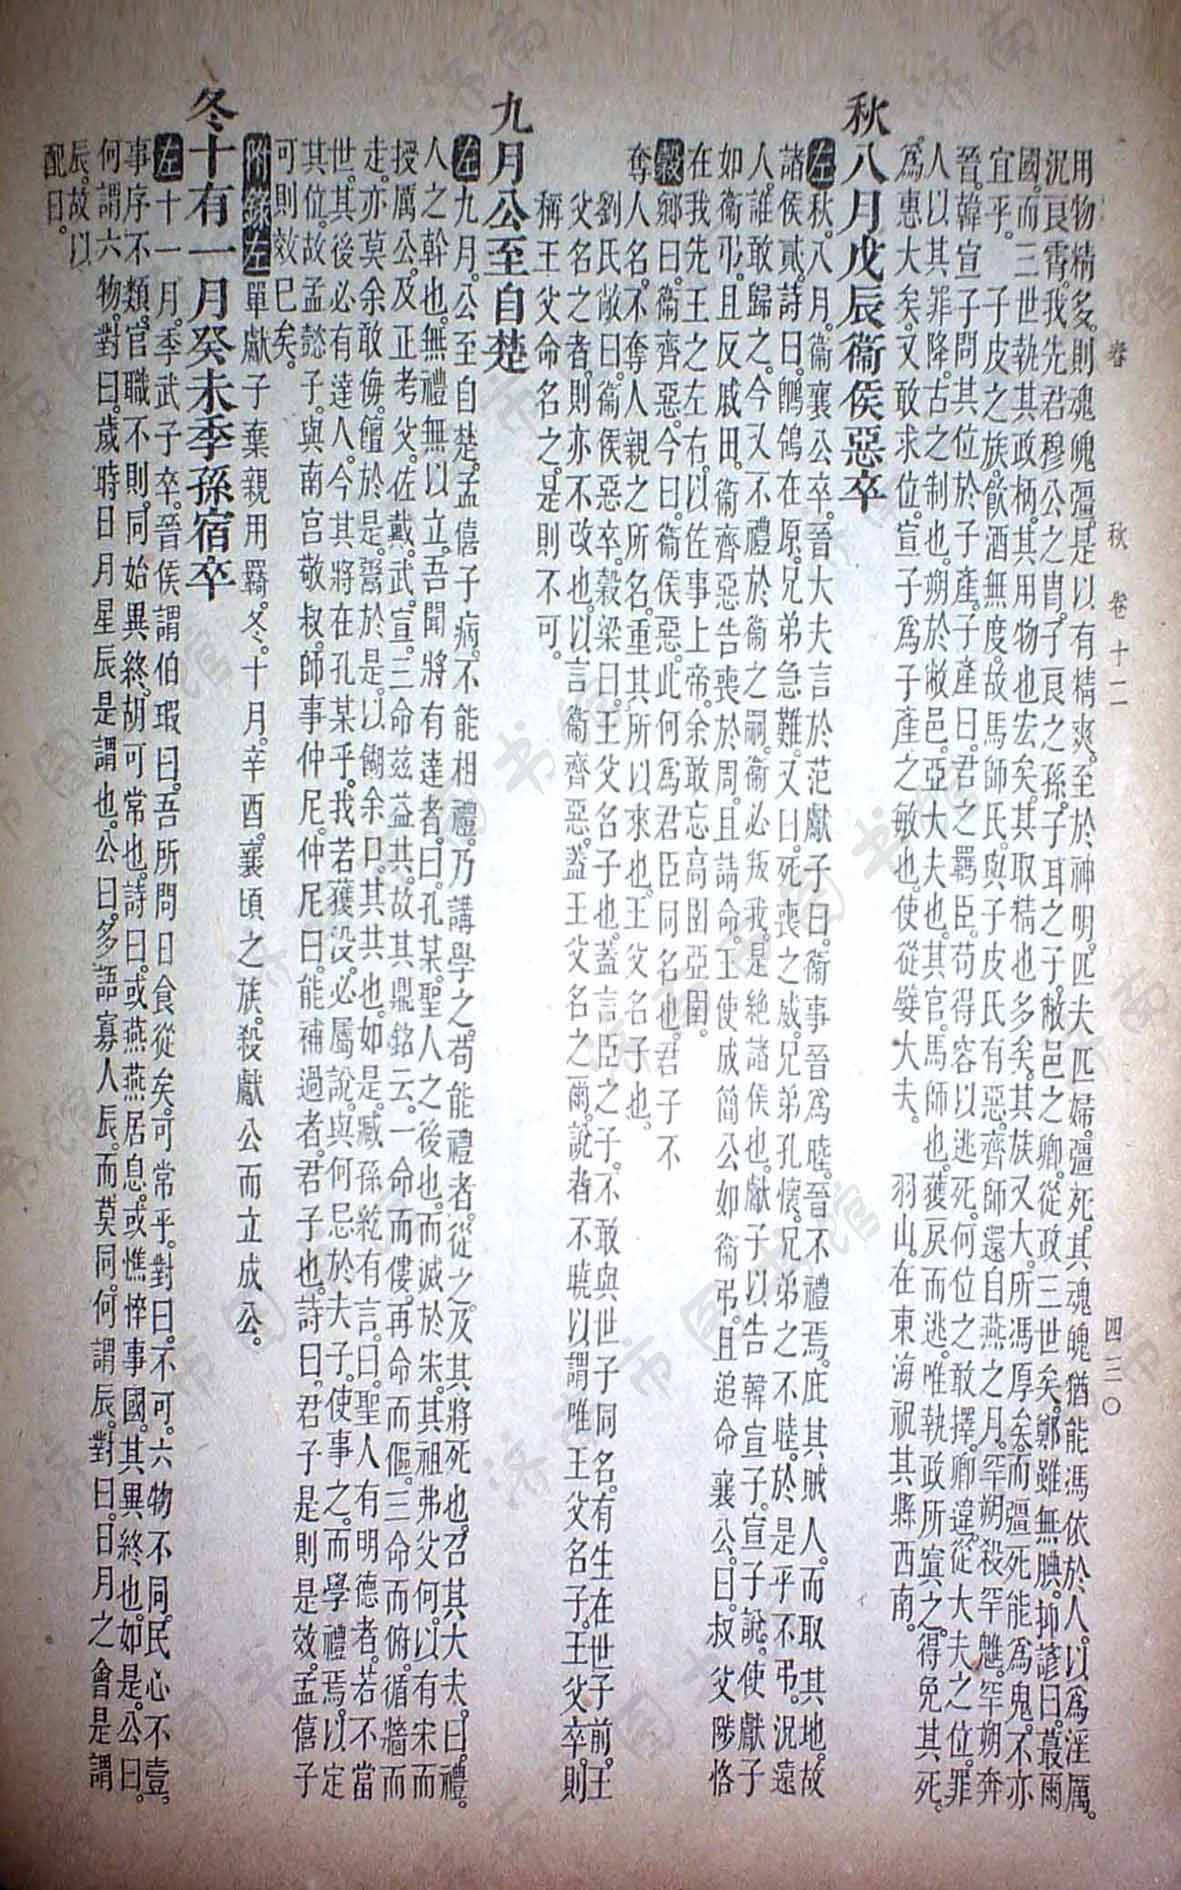 春 秋 卷十二 四三〇
用物精多則魂魄彊是以有精爽至於神明匹夫匹婦彊死其魂魄猶能馮依於人以爲淫厲
況良霄我先君穆公之冑子良之孫子耳之子敝邑之卿從政三世矣鄭雖無腆抑諺曰蕞爾
國而三世執其政柄其用物也宏矣其取精也多矣其族又大所馮厚矣而彊死能爲鬼不亦
宜乎 子皮之族飲酒無度故馬師氏與子皮氏有惡齊師還自燕之月罕朔殺罕魋罕朔奔
晉韓宣子問其位於子產子產曰君之羇臣苟得容以逃死何位之敢擇卿違從大夫之位罪
人以其罪降古之制也朔於敝邑亞大夫也其官馬師也獲戾而逃唯執政所寘之得免其死
爲惠大矣又敢求位宣子爲子產之敏也使從嬖大夫 羽山在東海祝其縣西南
秋八月戊辰衞侯惡卒
左秋八月衞襄公卒晉大夫言於范獻子曰衞事晉爲睦晉不禮焉庇其賊人而取其地故
諸侯貳詩曰鶺鴒在原兄弟急難又曰死喪之威兄弟孔懷兄弟之不睦於是乎不弔況遠
人誰敢歸之今又不禮於衞之嗣衞必叛我是絶諸侯也獻子以告韓宣子宣子說使獻子
如衞弔且反戚田衞齊惡告喪於周且請命王使成簡公如衞弔且追命襄公曰叔父陟恪
在我先王之左右以佐事上帝余敢忘高圉亞圉
穀鄉曰衞齊惡今曰衞侯惡此何爲君臣同名也君子不
奪人名不奪人親之所名重其所以來也王父名子也
劉氏敞曰衞侯惡卒穀梁曰王父名子也蓋言臣之子不敢與世子同名有生在世子前王
父名之者則亦不改也以言衞齊惡蓋王父名之爾說者不曉以謂唯王父名子王父卒則
稱王父命名之是則不可
九月公至自楚
左九月公至自楚孟僖子病不能相禮乃講學之苟能禮者從之及其將死也召其大夫曰禮
人之幹也無禮無以立吾聞將有達者曰孔某聖人之後也而滅於宋其祖弗父何以有宋而
授厲公及正考父佐戴武宣三命茲益共故其鼎銘云一命而僂再命而傴三命而俯循牆而
走亦莫余敢侮饘於是鬻於是以餬余口其共也如是臧孫紇有言曰聖人有明德者若不當
世其後必有達人今其將在孔某乎我若獲沒必屬說與何忌於夫子使事之而學禮焉以定
其位故孟懿子與南宮敬叔師事仲尼仲尼曰能補過者君子也詩曰君子是則是效孟僖子
可則效巳矣
附錄左單獻子棄親用羇冬十月辛酉襄頃之族殺獻公而立成公
冬十有一月癸未季孫宿卒
左十一月季武子卒晉侯謂伯瑕曰吾所問日食從矣可常乎對曰不可六物不同民心不壹
事序不類官職不則同始異終胡可常也詩曰或燕燕居息或憔悴事國其異終也如是公曰
何謂六物對曰歲時日月星辰是謂也公曰多語寡人辰而莫同何謂辰對曰日月之會是謂
辰故以
配日